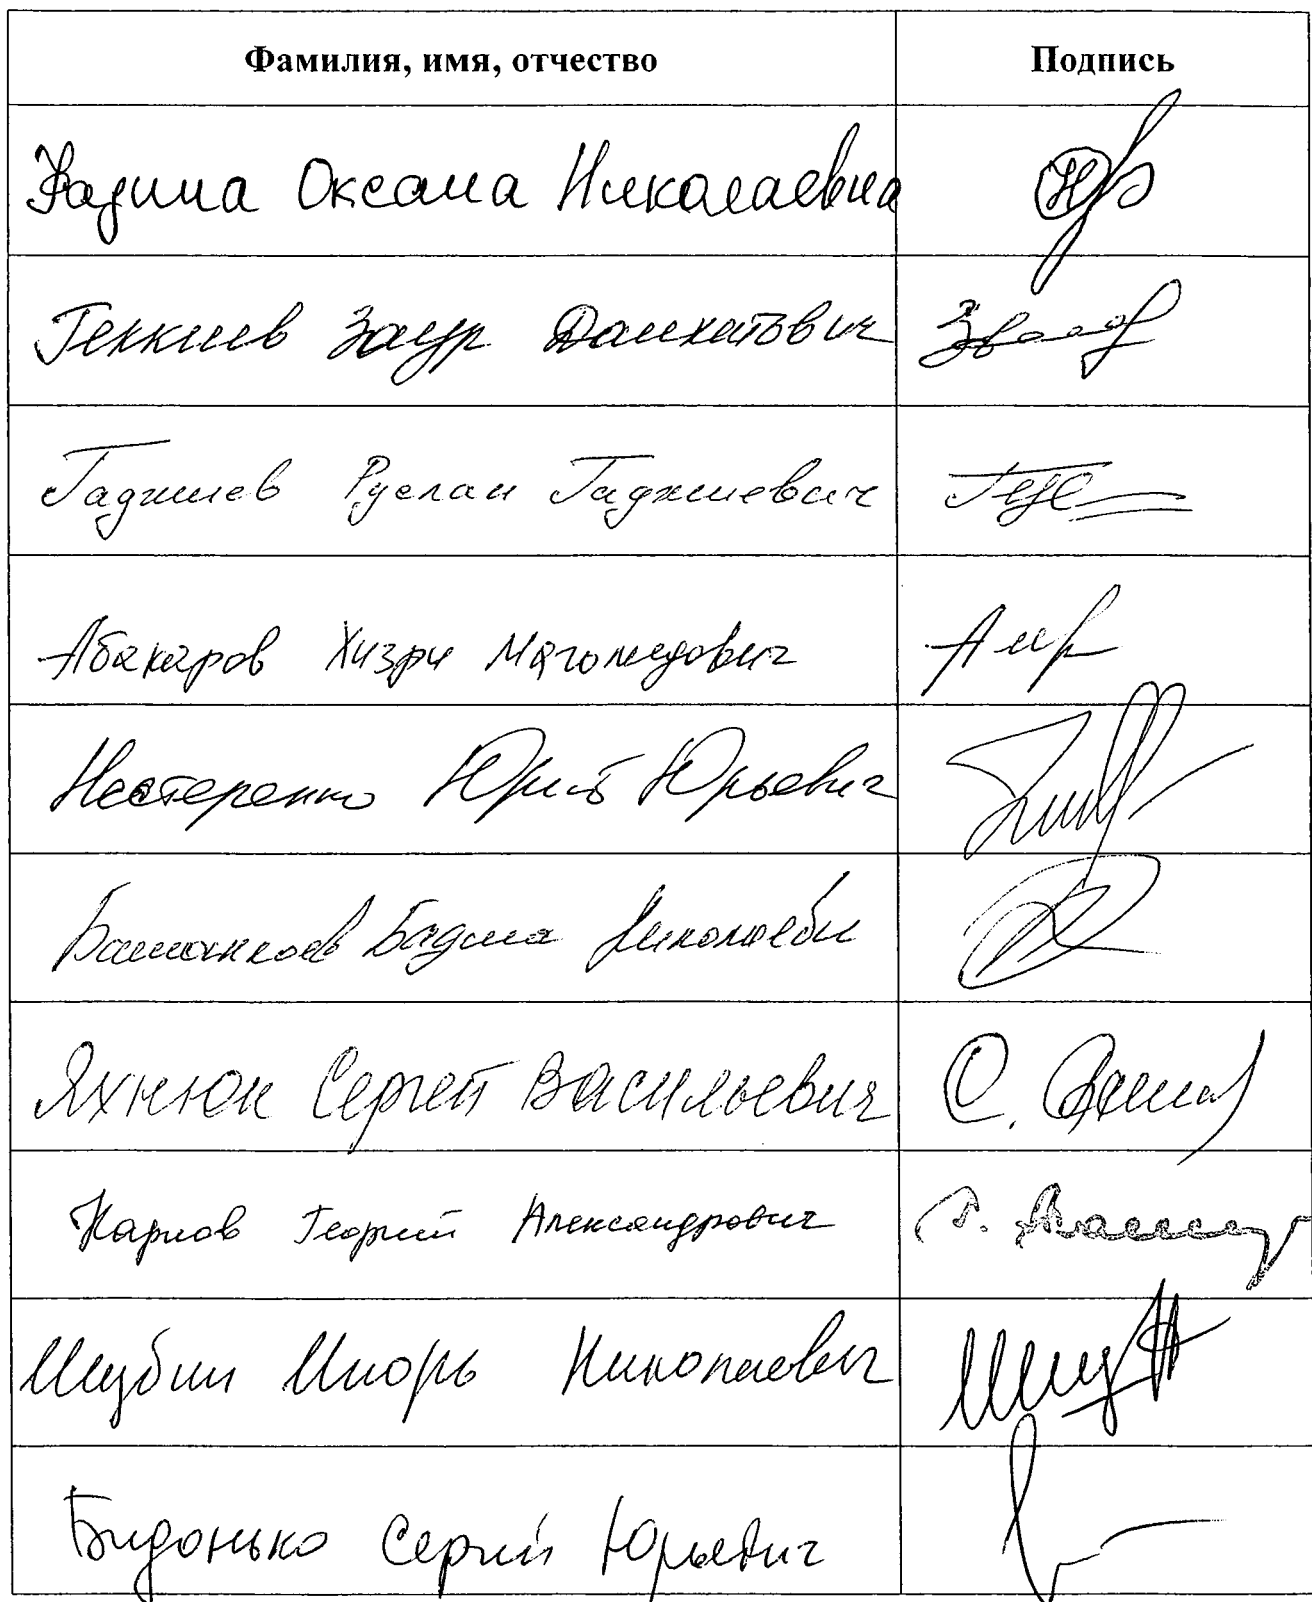 Фамилия, имя, отчество Подпись
Оксана Николаевна
Геккиев Заур Далхатович
Гаджиев Руслан Гаджиевич
Абакаров Хизри Магомедович
Нестеренко Юрий Юрьевич
Башанкаев Бадма Николаеви
Яхнюк Сергей Васильевич
Карлов Георгий Александрович
Шубин Игорь Николаевич
Бидонько Сергей Юрьевич